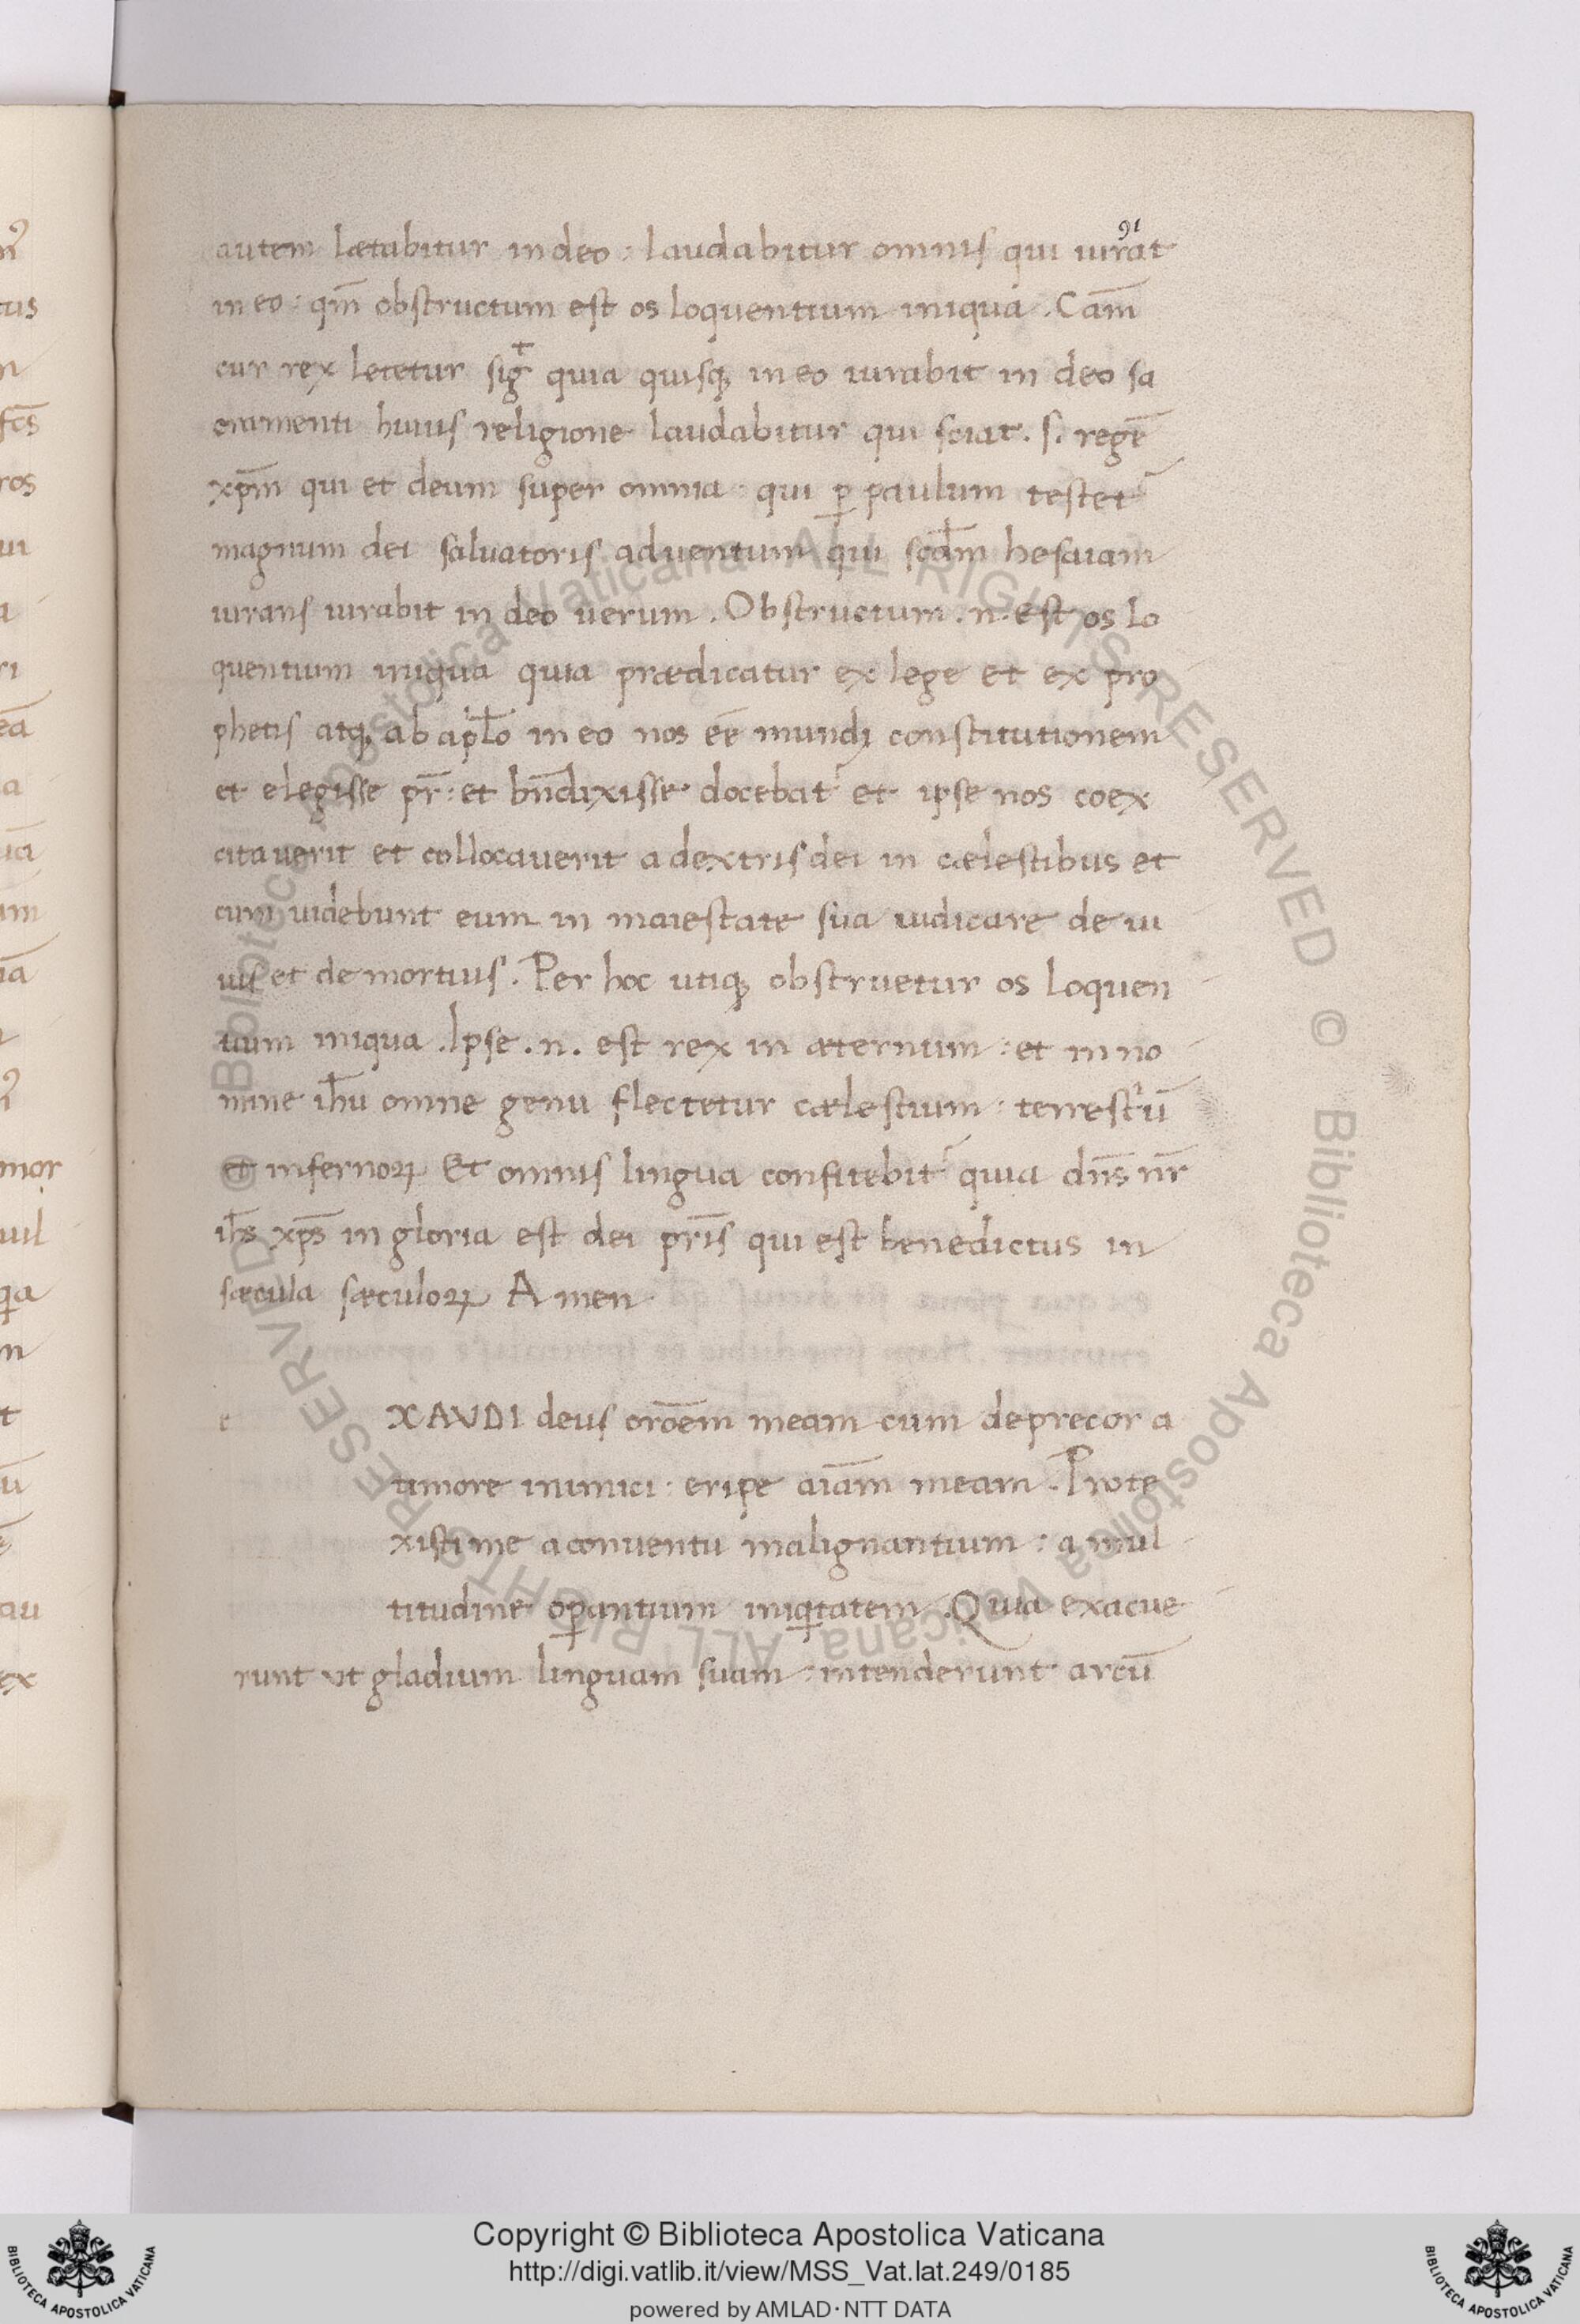 autem lætabitur in deo : laudabitur omnis qui iurat
in eo : qm̄ obstructum est os loquentium iniqua . Cam̄
cur rex letetur siḡt quia quisq; in eo iurabit in deo sa
cramenti huius religione laudabitur qui sciat . s . regē
xp̄m qui et deum super omnia : qui ꝑ paulum testet̄
magnum dei saluatoris aduentum qui scd̄m hesaiam
iurans iurabit in deo uerum . Obstructum . n . est os lo
quentium iniqua quia prædicatur ex lege et ex pro
phetis atq; ab apl̄o in eo nos eē mundi constitutionem
et elegisse pr̄ : et bn̄dixisse docebat̄ et ipse nos coex
citauerit et collocauerit a dextris dei in cælestibus et
cum uidebunt eum in maiestate sua iudicare de ui
uis et de mortuis . Per hoc utiq; obstruetur os loquen
tium iniqua . Ipse . n . est rex in æternum : et in no
mine ih̄u omne genu flectetur cælestium : terrestriū
et infernoꝝ Et omnis lingua confitebit̄ quia dn̄s nr̄
ih̄s xp̄s in gloria est dei pr̄is qui est benedictus in
sæcula sæculoꝝ Amen
e XAVDI deus orōem meam cum deprecor a
timore inimici : eripe aīam meam . Prote
xisti me a conuentu malignantium : a mul
titudine oꝑantium iniqitatem . Quia exacue
runt ut gladium linguam suam : intenderunt arcū
Copyright © Biblioteca Apostolica Vaticana
http://digi.vatlib.it/view/MSS_Vat.lat.249/0185
powered by AMLAD·NTT DATA
BIBLIOTECA APOSTOLICA VATICANA
BIBLIOTECA APOSTOLICA VATICANA
© Biblioteca Apostolica Vaticana ALL RIGHTS RESERVED
© Biblioteca Apostolica Vaticana ALL RIGHTS RESERVED